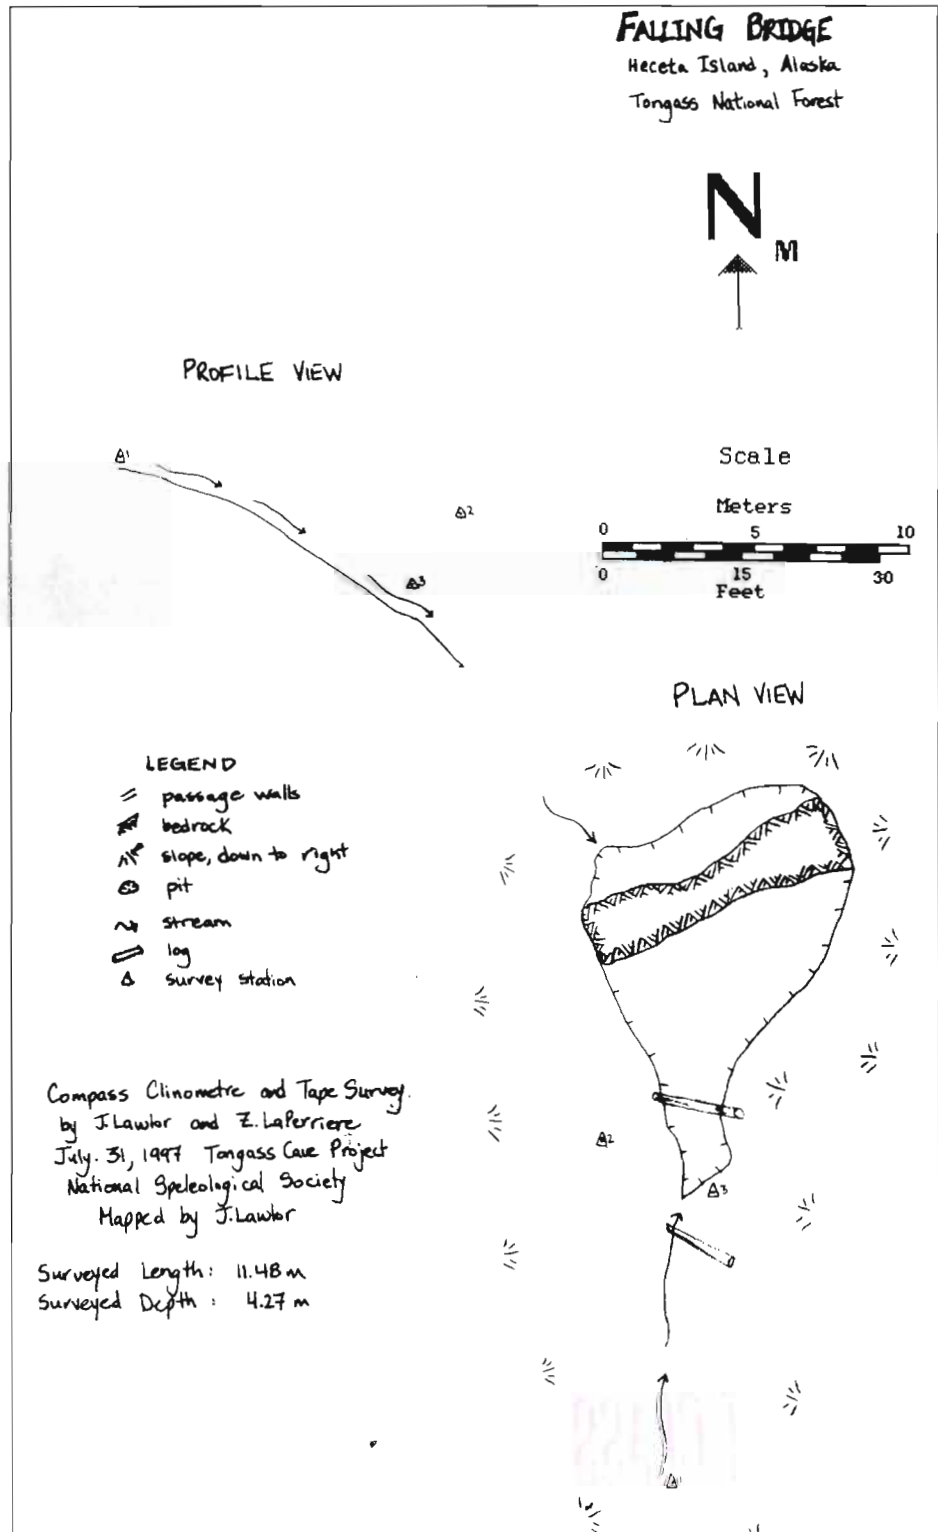 FALLING BRIDGE
Heceta Island, Alaska
Tongass National Forest
N
M
PROFILE VIEW
1
2
3
Scale
Meters
0 5 10
0 15 30
Feet
PLAN VIEW
LEGEND
passage walls
bedrock
slope, down to right
pit
stream
log
survey station
2
3
Compass Clinometre and Tape Survey.
by J. Lawlor and Z. LaPerriere
July. 31, 1997 Tongass Cave Project
National Speleological Society
Mapped by J. Lawlor
Surveyed Length: 11.48 m
Surveyed Depth : 4.27 m